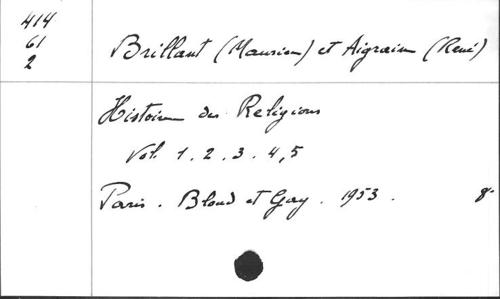 414
61
2
Brillant (Maurice) et Aigrain (René)
Histoire des Religions
Vol. 1. 2. 3. 4, 5
Paris. Bloud et Gay. 1953. 8°